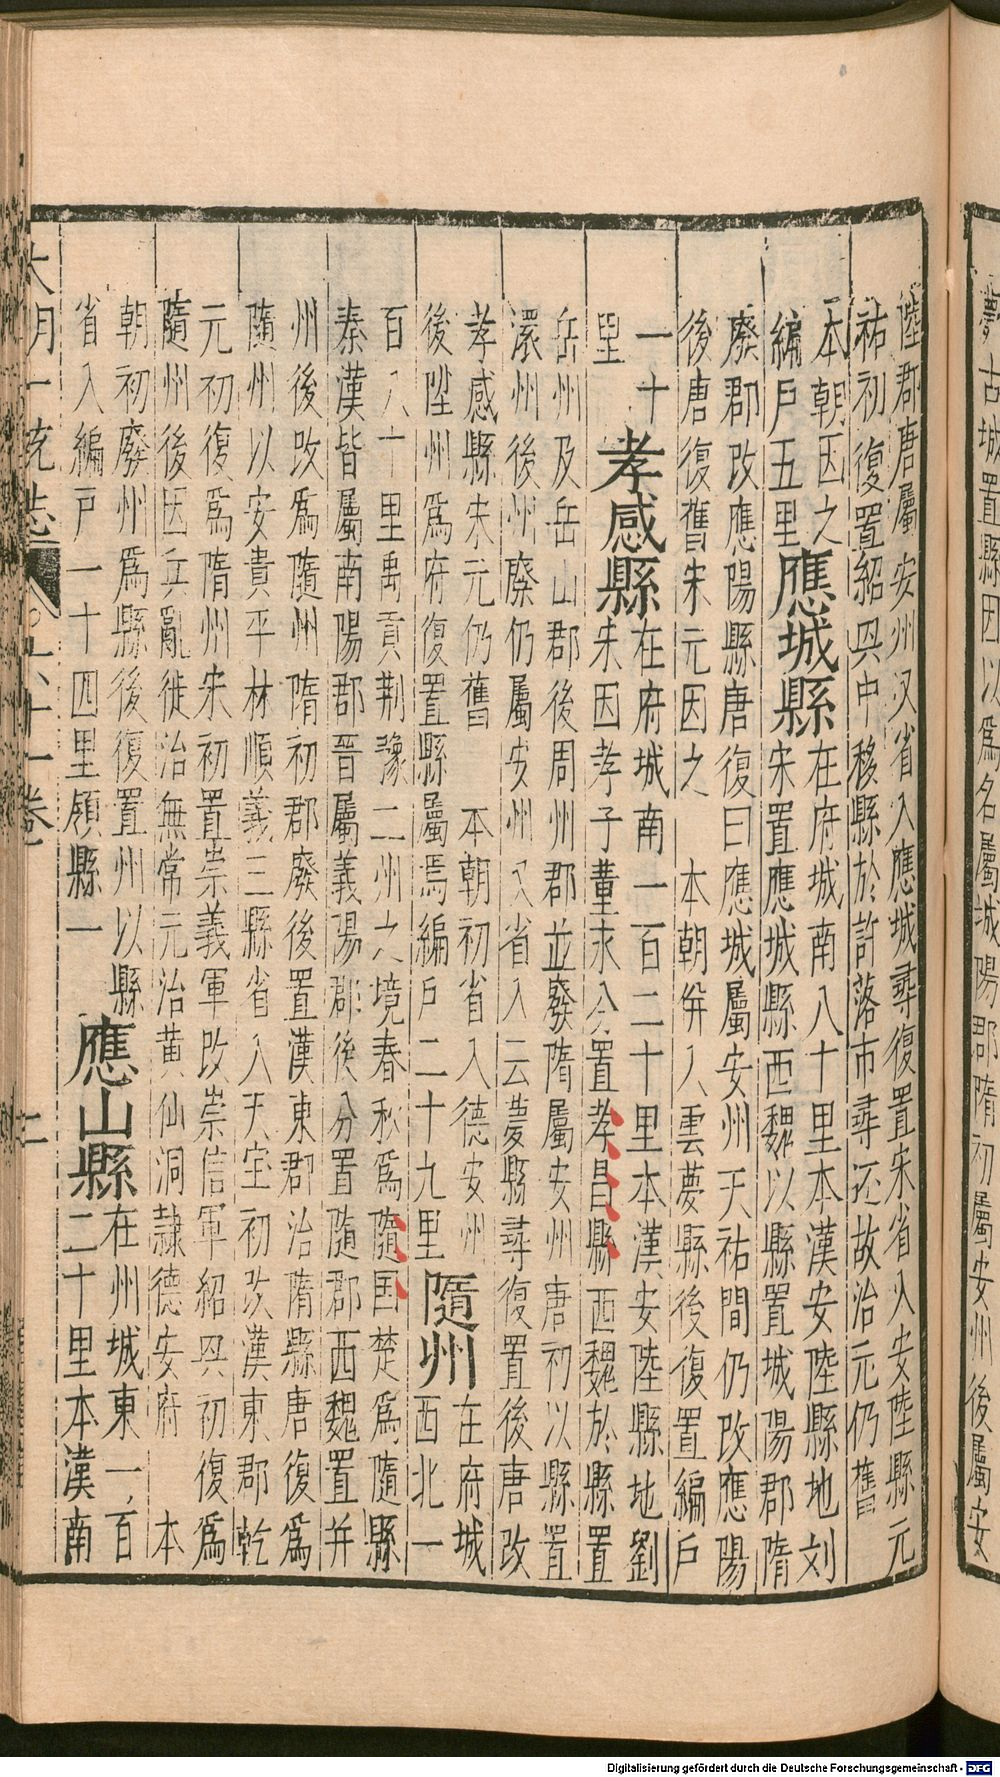 夢古城置縣因以爲名屬城陽郡隋初屬安州後屬安
陸郡唐屬安州又省入應城尋復置宋省入安陸縣元
祐初復置紹興中移縣於許落市尋还故治元仍舊
本朝因之
編戶五里
應城縣
在府城南八十里本漢安陸縣地刘
宋置應城縣西魏以縣置城陽郡隋
廢郡改應陽縣唐復曰應城屬安州天祐間仍改應陽
後唐復舊宋元因之 本朝併入雲夢縣後復置編戶
一十
里
孝感縣
在府城南一百二十里本漢安陸縣地劉
宋因孝子董永分置孝昌縣西魏於縣置
岳州及岳山郡後周州郡並廢隋屬安州唐初以縣置
澴州後州廢仍屬安州又省入云夢縣尋復置後唐改
孝感縣宋元仍舊 本朝初省入德安州
後陞州爲府復置縣屬焉編戶二十九里
隨州
在府城
西北一
百八十里禹貢荆豫二州之境春秋爲隨国楚爲隨縣
秦漢皆屬南陽郡晉屬義陽郡後分置随郡西魏置并
州後改爲隨州隋初郡廢後置漢東郡治隋縣唐復爲
隨州以安貴平林順義三縣省入天宝初改漢東郡乾
元初復爲隋州宋初置崇義軍改崇信軍紹興初復爲
隨州後因兵亂徙治無常元治黄仙洞隸德安府 本
朝初廢州爲縣後復置州以縣
省入編戶一十四里領縣一
應山縣
在州城東一百
二十里本漢南
大明一統志 六十一卷 二
Digitalisierung gefördert durch die Deutsche Forschungsgemeinschaft - DFG